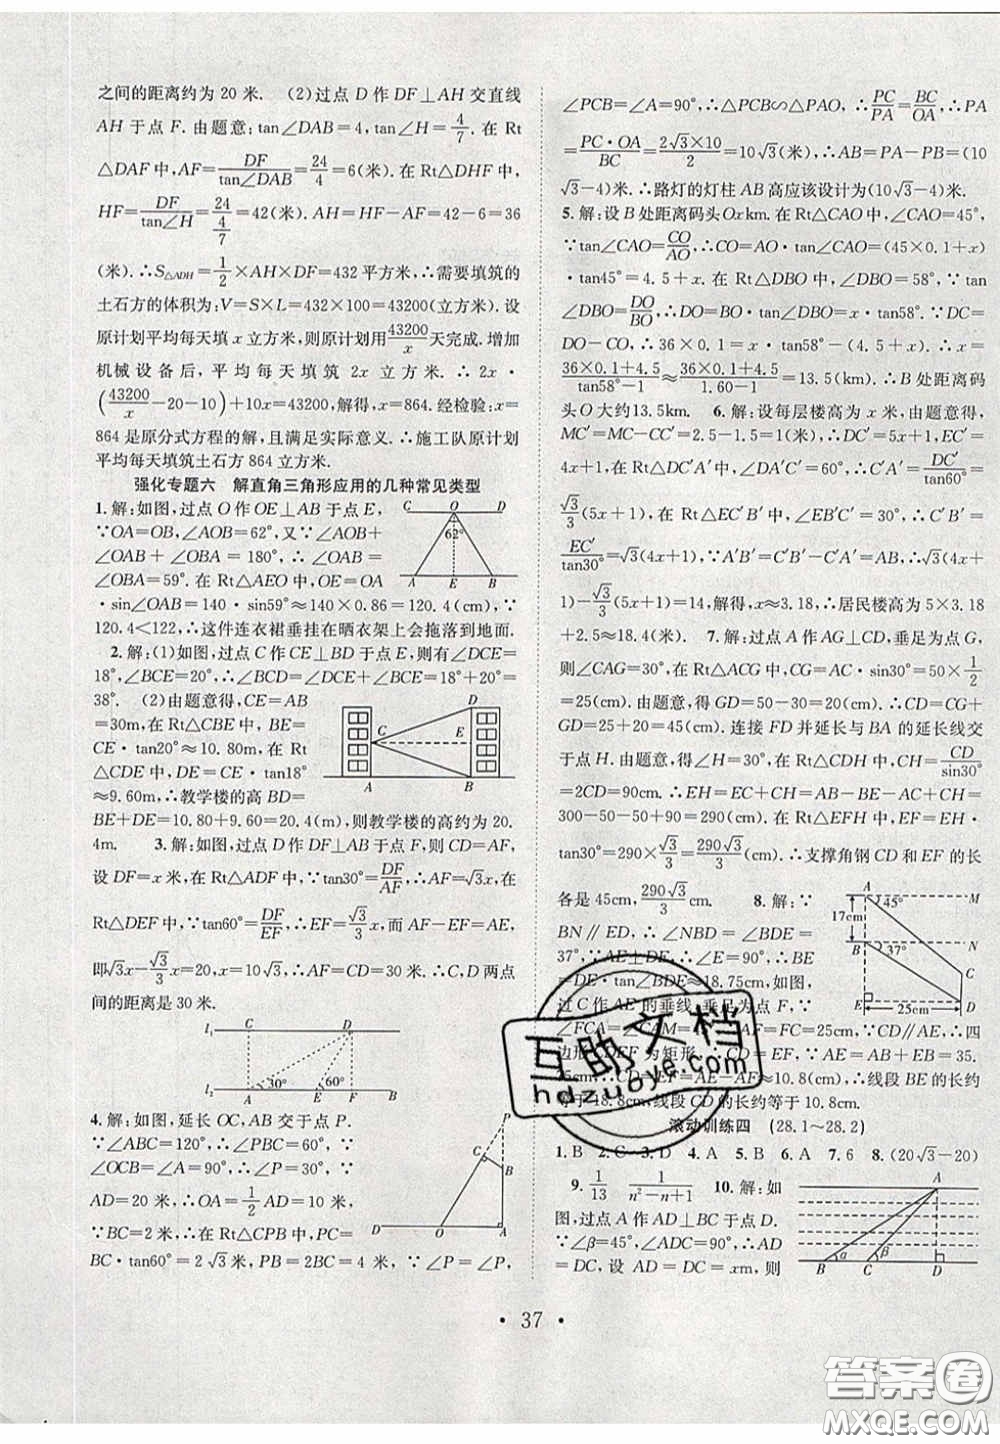 之间的距离约为 20 米. (2)过点 D 作 DF⊥AH 交直线
AH 于点 F. 由题意:tan∠DAB=4,tan∠H=4/7. 在 Rt
△DAF 中,AF=DF/tan∠DAB=24/4=6(米). 在 Rt△DHF 中,
HF=DF/tan∠H=24/(4/7)=42(米). AH=HF-AF=42-6=36
(米). ∴S△ADH=1/2×AH×DF=432 平方米,∴需要填筑的
土石方的体积为:V=S×L=432×100=43200(立方米). 设
原计划平均每天填 x 立方米,则原计划用43200/x天完成. 增加
机械设备后,平均每天填筑 2x 立方米. ∴ 2x·
(43200/x-20-10)+10x=43200,解得,x=864. 经检验:x=
864 是原分式方程的解,且满足实际意义. ∴施工队原计划
平均每天填筑土石方 864 立方米.
强化专题六 解直角三角形应用的几种常见类型
1.解:如图,过点 O 作 OE⊥AB 于点 E,
∵OA=OB,∠AOB=62°,又∵∠AOB+
∠OAB + ∠OBA = 180°, ∴ ∠OAB =
∠OBA=59°. 在 Rt△AEO 中,OE=OA
·sin∠OAB=140·sin59°≈140×0.86=120.4(cm),∵
120.4<122,∴这件连衣裙垂挂在晒衣架上会拖落到地面.
C O D
62°
A E B
2.解:(1)如图,过点 C 作 CE⊥BD 于点 E,则有∠DCE=
18°,∠BCE=20°,∴∠BCD=∠DCE+∠BCE=18°+20°=
38°. (2)由题意得,CE=AB
=30m,在 Rt△CBE 中,BE=
CE·tan20°≈10.80m,在 Rt
△CDE 中,DE=CE·tan18°
≈9.60m,∴教学楼的高 BD=
BE+DE=10.80+9.60=20.4(m),则教学楼的高约为 20.
4m.
D
C E
A B
3.解:如图,过点 D 作 DF⊥AB 于点 F,则 CD=AF,
设 DF=x 米,在 Rt△ADF 中,∵tan30°=DF/AF,∴AF=√3x,在
Rt△DEF 中,∵tan60°=DF/EF,∴EF=√3/3x,而 AF-EF=AE,
即√3x-√3/3x=20,x=10√3,∴AF=CD=30 米,∴C,D 两点
间的距离是 30 米.
l₁ C D
l₂ A 30° E 60° F B
4.解:如图,延长 OC,AB 交于点 P.
∵∠ABC=120°,∴∠PBC=60°,∵
∠OCB=∠A=90°,∴∠P=30°,∵
AD=20 米,∴OA=1/2AD=10 米,
∵BC=2 米,∴在 Rt△CPB 中,PC=
BC·tan60°=2√3 米,PB=2BC=4 米,∵∠P=∠P,
P
C B
D O A
∠PCB=∠A=90°,∴△PCB∽△PAO,∴PC/PA=BC/OA,∴PA
=PC·OA/BC=2√3×10/2=10√3(米),∴AB=PA-PB=(10
√3-4)米. ∴路灯的灯柱 AB 高应该设计为(10√3-4)米.
5.解:设 B 处距离码头 Oxkm. 在 Rt△CAO 中,∠CAO=45°,
∵tan∠CAO=CO/AO,∴CO=AO·tan∠CAO=(45×0.1+x)
·tan45°=4.5+x. 在 Rt△DBO 中,∠DBO=58°,∵tan
∠DBO=DO/BO,∴DO=BO·tan∠DBO=x·tan58°. ∵DC=
DO-CO,∴36×0.1=x·tan58°-(4.5+x),∴x=
(36×0.1+4.5)/(tan58°-1)≈(36×0.1+4.5)/(1.60-1)=13.5(km). ∴B 处距离码
头 O 大约13.5km. 6.解:设每层楼高为 x 米,由题意得,
MC′=MC-CC′=2.5-1.5=1(米),∴DC′=5x+1,EC′=
4x+1,在 Rt△DC′A′中,∠DA′C′=60°,∴C′A′=DC′/tan60°=
√3/3(5x+1),在 Rt△EC′B′中,∠EB′C′=30°,∴C′B′=
EC′/tan30°=√3(4x+1),∵A′B′=C′B′-C′A′=AB,∴√3(4x+
1)-√3/3(5x+1)=14,解得,x≈3.18,∴居民楼高为 5×3.18
+2.5≈18.4(米). 7.解:过点 A 作 AG⊥CD,垂足为点 G,
则∠CAG=30°,在 Rt△ACG 中,CG=AC·sin30°=50×1/2
=25(cm),由题意,得 GD=50-30=20(cm),∴CD=CG+
GD=25+20=45(cm). 连接 FD 并延长与 BA 的延长线交
于点 H. 由题意,得∠H=30°,在 Rt△CDH 中,CH=CD/sin30°
=2CD=90cm. ∴EH=EC+CH=AB-BE-AC+CH=
300-50-50+90=290(cm). 在 Rt△EFH 中,EF=EH·
tan30°=290×√3/3=290√3/3(cm). ∴支撑角钢 CD 和 EF 的长
各是 45cm,290√3/3cm. 8.解:∵
BN∥ED,∴∠NBD=∠BDE=
37°,∵AE⊥DE,∴∠E=90°,∴BE
=DE·tan∠BDE≈18.75cm,如图,
过 C 作 AE 的垂线,垂足为点 F,∵
∠FCA=∠CAM= AF=FC=25cm,∵CD∥AE,∴四
边形 CDEF 为矩形,∴CD=EF,∵AE=AB+BE=35.
75cm,∴CD=EF=AE-AF≈10.8(cm),∴线段 BE 的长约
等于 18.8cm,线段 CD 的长约等于 10.8cm.
A M
45°
17cm
B N
37°
C
E 25cm
滚动训练四 (28.1~28.2)
1.B 2.C 3.D 4.B 5.A 6.A 7.6 8.(20√3-20)
9.1/13 1/(n²-n+1) 10.解:如
图,过点 A 作 AD⊥BC 于点 D.
∵∠β=45°,∠ADC=90°,∴AD
=DC,设 AD=DC=xm,则
A
α β
B C D
互助文档
hdzuobye.com
• 37 •
答案圈
MXQE.COM